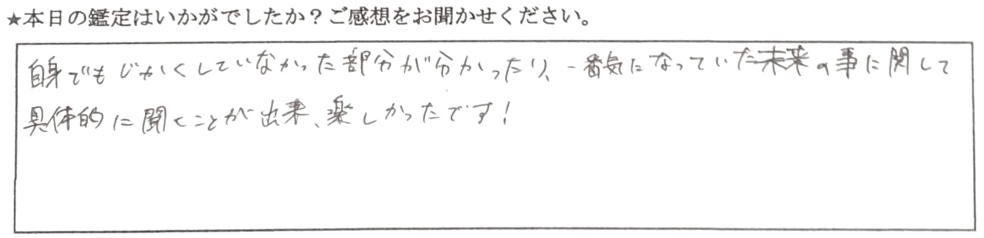 ★本日の鑑定はいかがでしたか？ご感想をお聞かせください。
自身でもじかくしていなかった部分が分かったり、一番気になっていた未来の事に関して
具体的に聞くことが出来、楽しかったです！